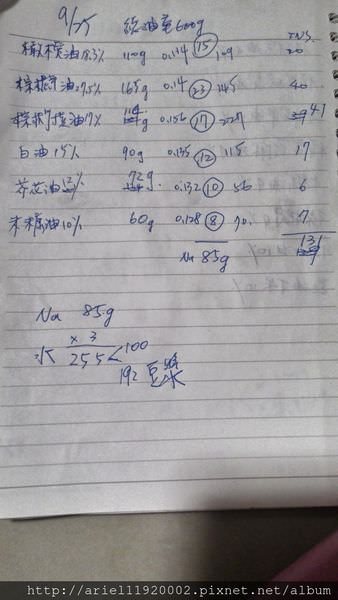 9/25 總油重600g
INS
橄欖油18.3% 110g 0.134 15 109 20
棕櫚油27.5% 165g 0.14 23 145 40
棕櫚核油17% g 0.156 17 227 41
白油15% 90g 0.135 12 115 17
芥花油12% 72g 0.132 10 56 6
米糠油10% 60g 0.128 8 70 7
Na 85g 131
Na 85g
x 3
水 255 < 100
192 豆漿
http://ariel11920002.pixnet.net/album